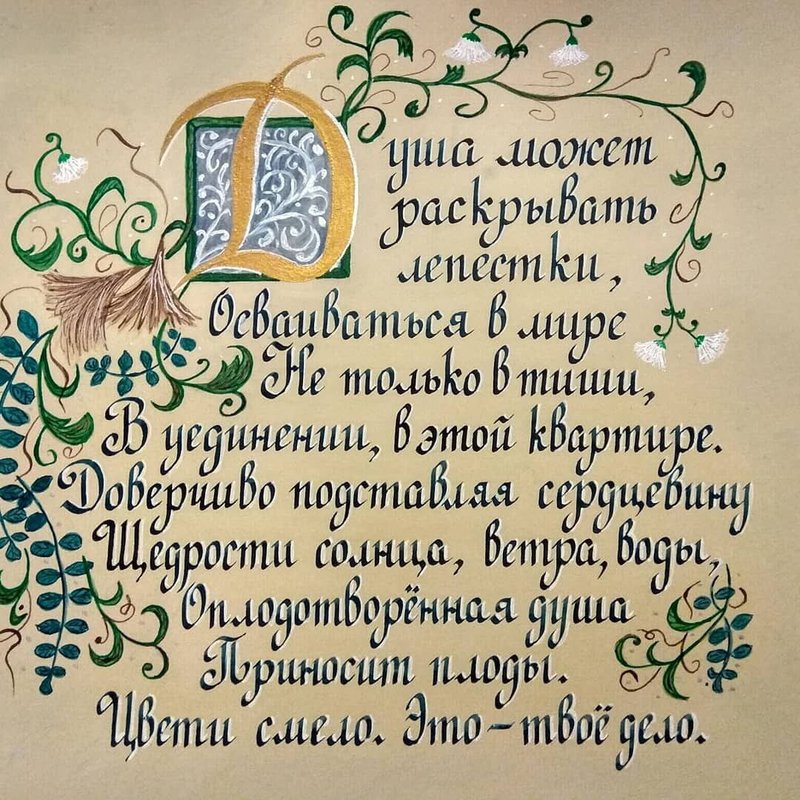 Душа может
раскрывать
лепестки,
Осваиваться в мире
Не только в тиши,
В уединении, в этой квартире.
Доверчиво подставляя сердцевину
Щедрости солнца, ветра, воды,
Оплодотворённая душа
Приносит плоды.
Цвети смело. Это – твоё дело.